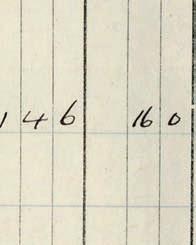 146 16 0